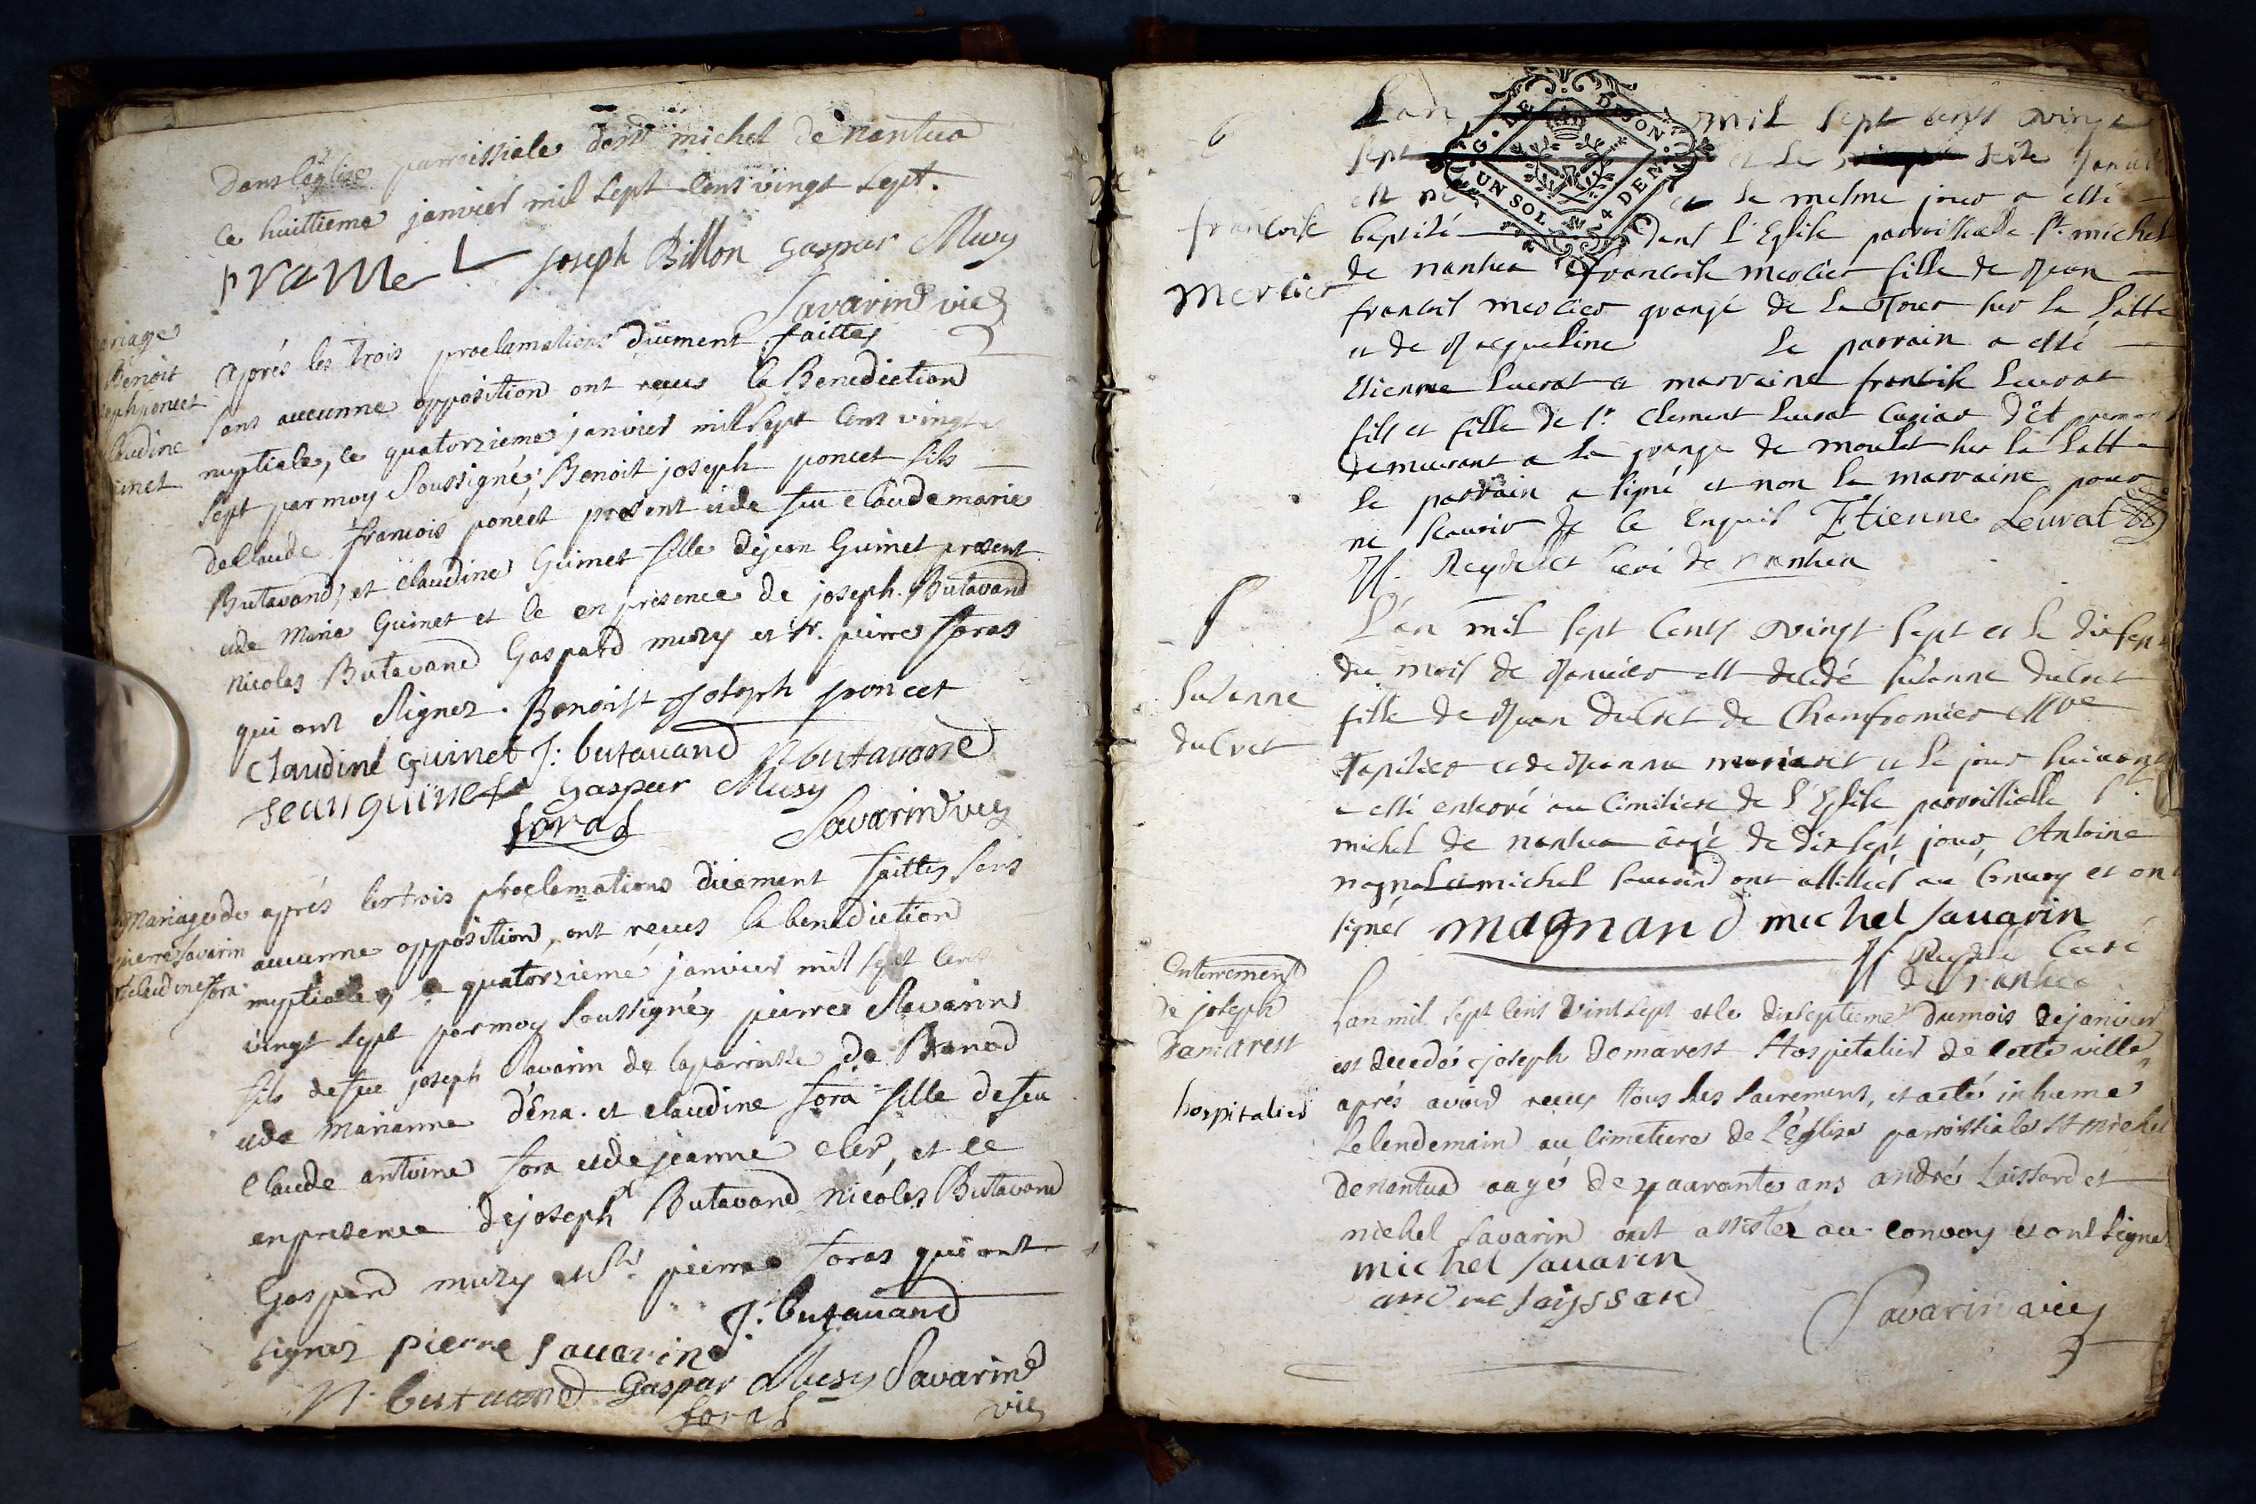 dans l'église parroissiale de st michel de nantua
ce huittieme janvier mil sept cent vingt sept.
joseph Billon Gaspar Musy
Savarin vic
ariage
Benoit
seph poncet
laudine
uinet
aprés les trois proclamations düement faittes
sans aucunne opposition ont reçus la Benediction
nuptiale, ce quatorzieme janvier mil sept cent vingt
sept par moy soussigné; Benoit joseph poncet fils
de Claude françois poncet present et de feu Claude marie
Butavand, et claudine Guinet fille de jean Guinet present
et de Marie Guinet et ce en presence de joseph Butavand
Nicolas Butavand Gaspard muzy et sr. pierre foras
qui ont signez. Benoist joseph poncet
claudine Guinet J: butauand N butauand
jean guinet Gaspar Musy
foras Savarin vic
Mariage de
pierre Savarin
et claudine fora
aprés les trois proclamations düement faittes sans
aucunne opposition, ont reçus la benediction
nuptiale, ce quatorzieme janvier mil sept cent
vingt sept par moy soussigné, pierre Savarin
fils de feu joseph Savarin de la parroisse de Brenod
et de Marianne d'éna. et claudine fora fille de feu
Claude antoine fora et de jeanne cler, et ce
en presence de joseph Butavand Nicolas Butavand
Gaspard muzy et sr. pierre foras qui ont
signez pierre sauarin J: butauand
N. butauand Gaspar Musy Savarin
foras vic
G. DE DIJON
UN SOL 4 DEN.
L'an mil sept cents vingt
sept et le seize Janvier
est né et le mesme jour a esté
françoise
Mercier
baptisé dans l'Eglise parroissiale st. michel
de nantua françoise mercier fille de Jean
françois mercier grange de la Tour sur la Latte
et de Jacqueline le parrain a esté
Etienne Leurat et marraine françoise Leurat
fils et fille de sr. Clement Leurat
demeurant a la grange de moulet sur la Latte
le parrain a signé et non la marraine pour
ne sçavoir de ce enquis Etienne Leurat
Reydelet Curé de nantua
Suzanne
ducret
L'an mil sept cents vingt sept et le dix sept
du mois de Janvier est decedé suzanne ducret
fille de Jean ducret de Champfromier
Tapissier et de Jeanne et le jour suivant
a esté enterré au cimitiere de l'Eglise parroissialle st.
michel de nantua aagé de dix sept jours Antoine
magnand et michel savarin ont assistés au Convoy et ont
signés magnand michel sauarin
Reydelet Curé
de nantua
Enterrement
de joseph
Damarest
hospitalier
L'an mil sept cent vint sept et le dixseptieme du mois de janvier
est decedé joseph Demarest Hospitalier de cette ville
aprés avoir reçus tous les sacrements, et a eté inhumé
le lendemain au cimetiere de L'Église parroissiale st michel
de nantua aagé de quarante ans andré Laissard et
michel savarin ont assistez au convoy et ont signé
michel sauarin
andre laissard
Savarin vic